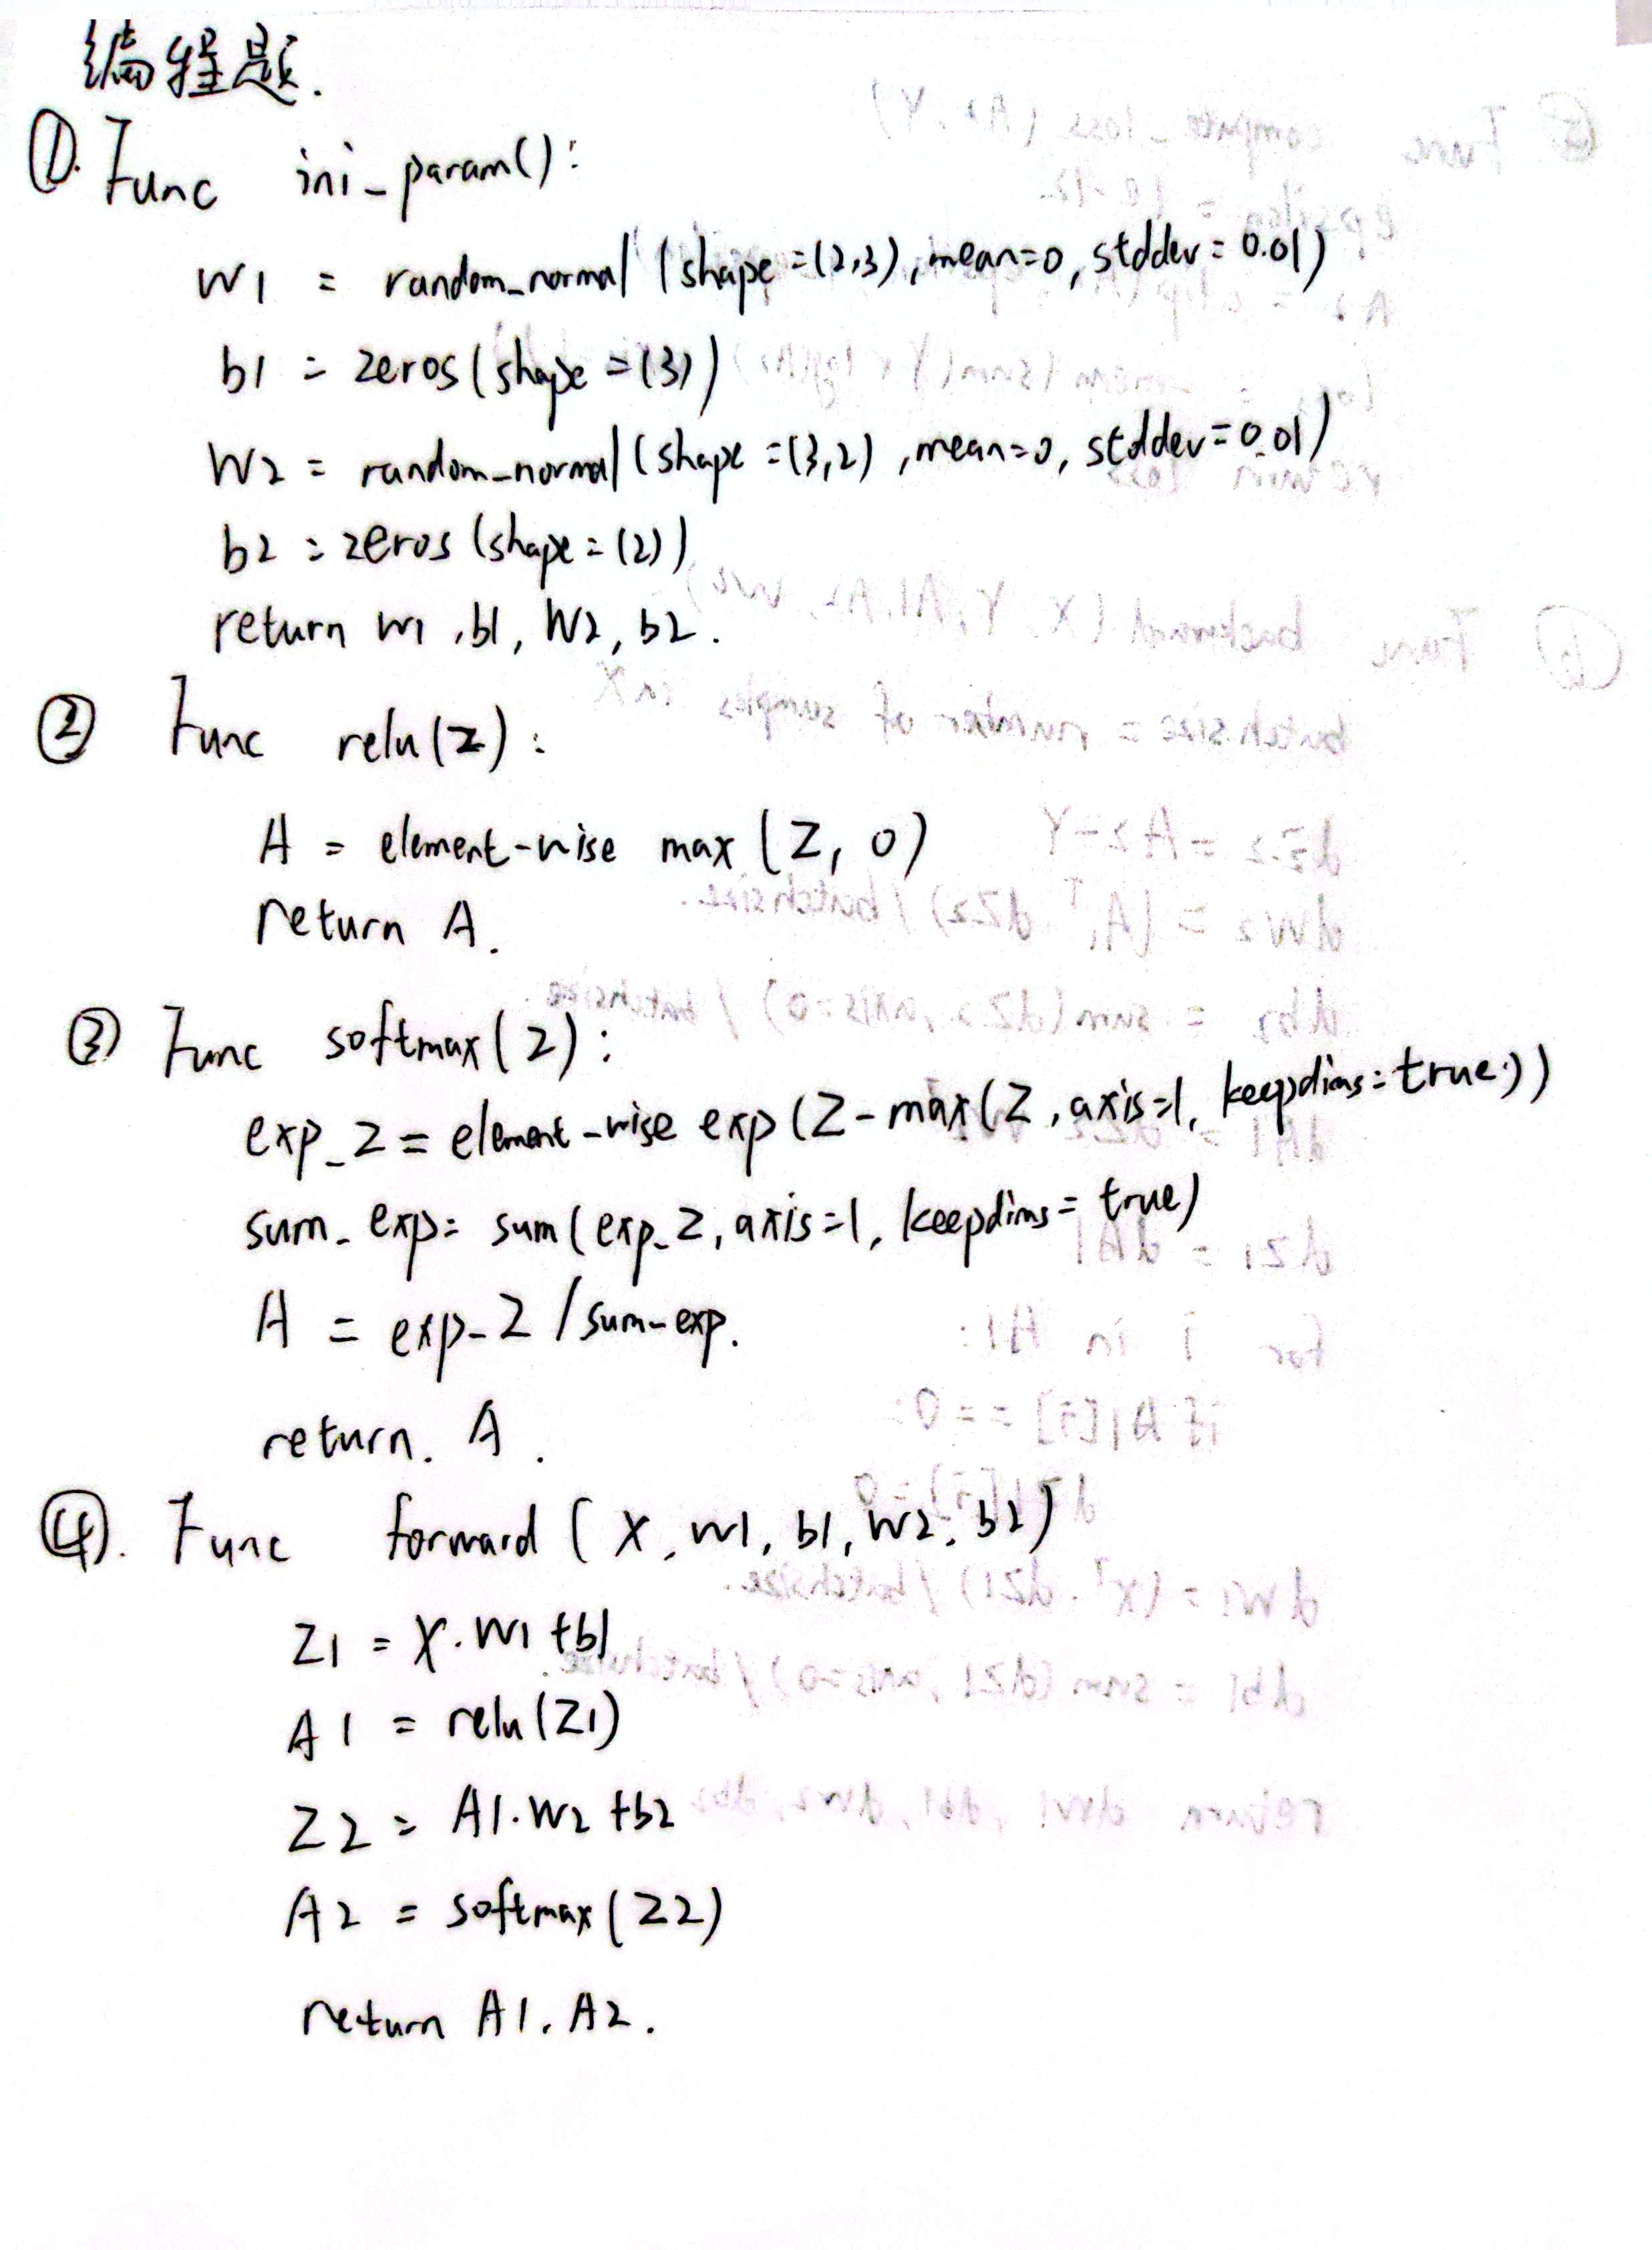 编程题.
①. Func ini_param():
W1 = random_normal (shape=(2,3), mean=0, stddev=0.01)
b1 = zeros(shape=(3))
W2 = random_normal (shape=(3,2), mean=0, stddev=0.01)
b2 = zeros (shape=(2))
return W1, b1, W2, b2.
② Func relu(Z):
A = element-wise max (Z, 0)
return A.
③ Func softmax(Z):
exp_Z = element-wise exp (Z-max(Z, axis=1, keepdims=true))
sum_exp= sum(exp_Z, axis=1, keepdims=true)
A = exp_Z / sum_exp.
return. A.
④. Func forward (X, W1, b1, W2, b2)
Z1 = X·W1+b1
A1 = relu(Z1)
Z2 = A1·W2+b2
A2 = softmax(Z2)
return A1, A2.